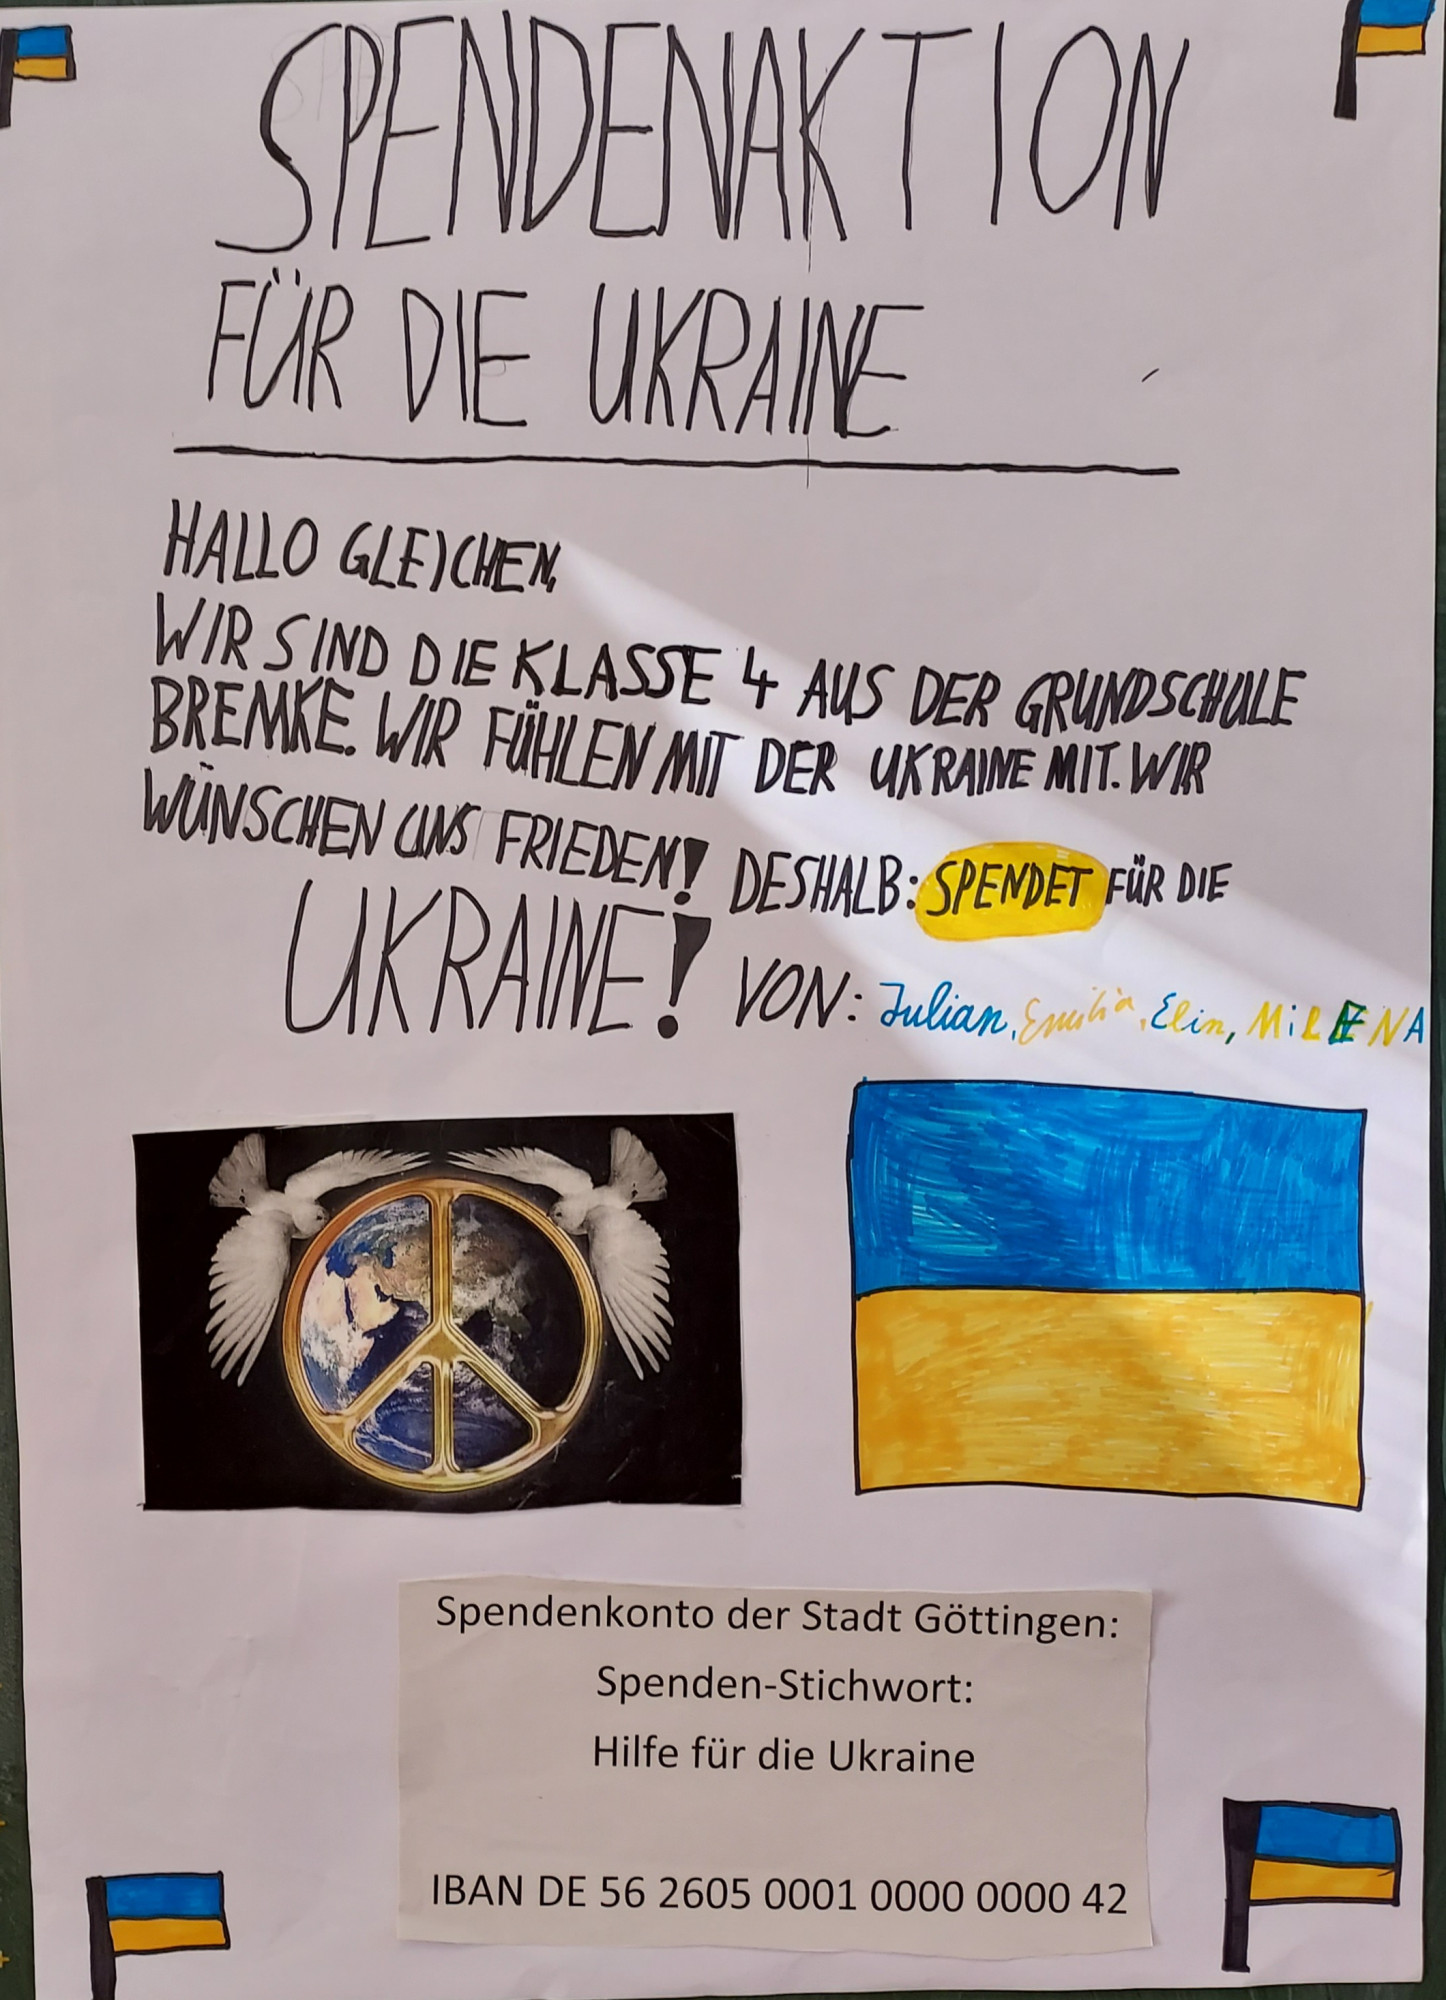 SPENDENAKTION
FÜR DIE UKRAINE
HALLO GLEICHEN,
WIR SIND DIE KLASSE 4 AUS DER GRUNDSCHULE
BREMKE. WIR FÜHLEN MIT DER UKRAINE MIT. WIR
WÜNSCHEN UNS FRIEDEN! DESHALB: SPENDET FÜR DIE
UKRAINE! VON: Julian, Emilia, Elin, MiLENA
Spendenkonto der Stadt Göttingen:
Spenden-Stichwort:
Hilfe für die Ukraine
IBAN DE 56 2605 0001 0000 0000 42